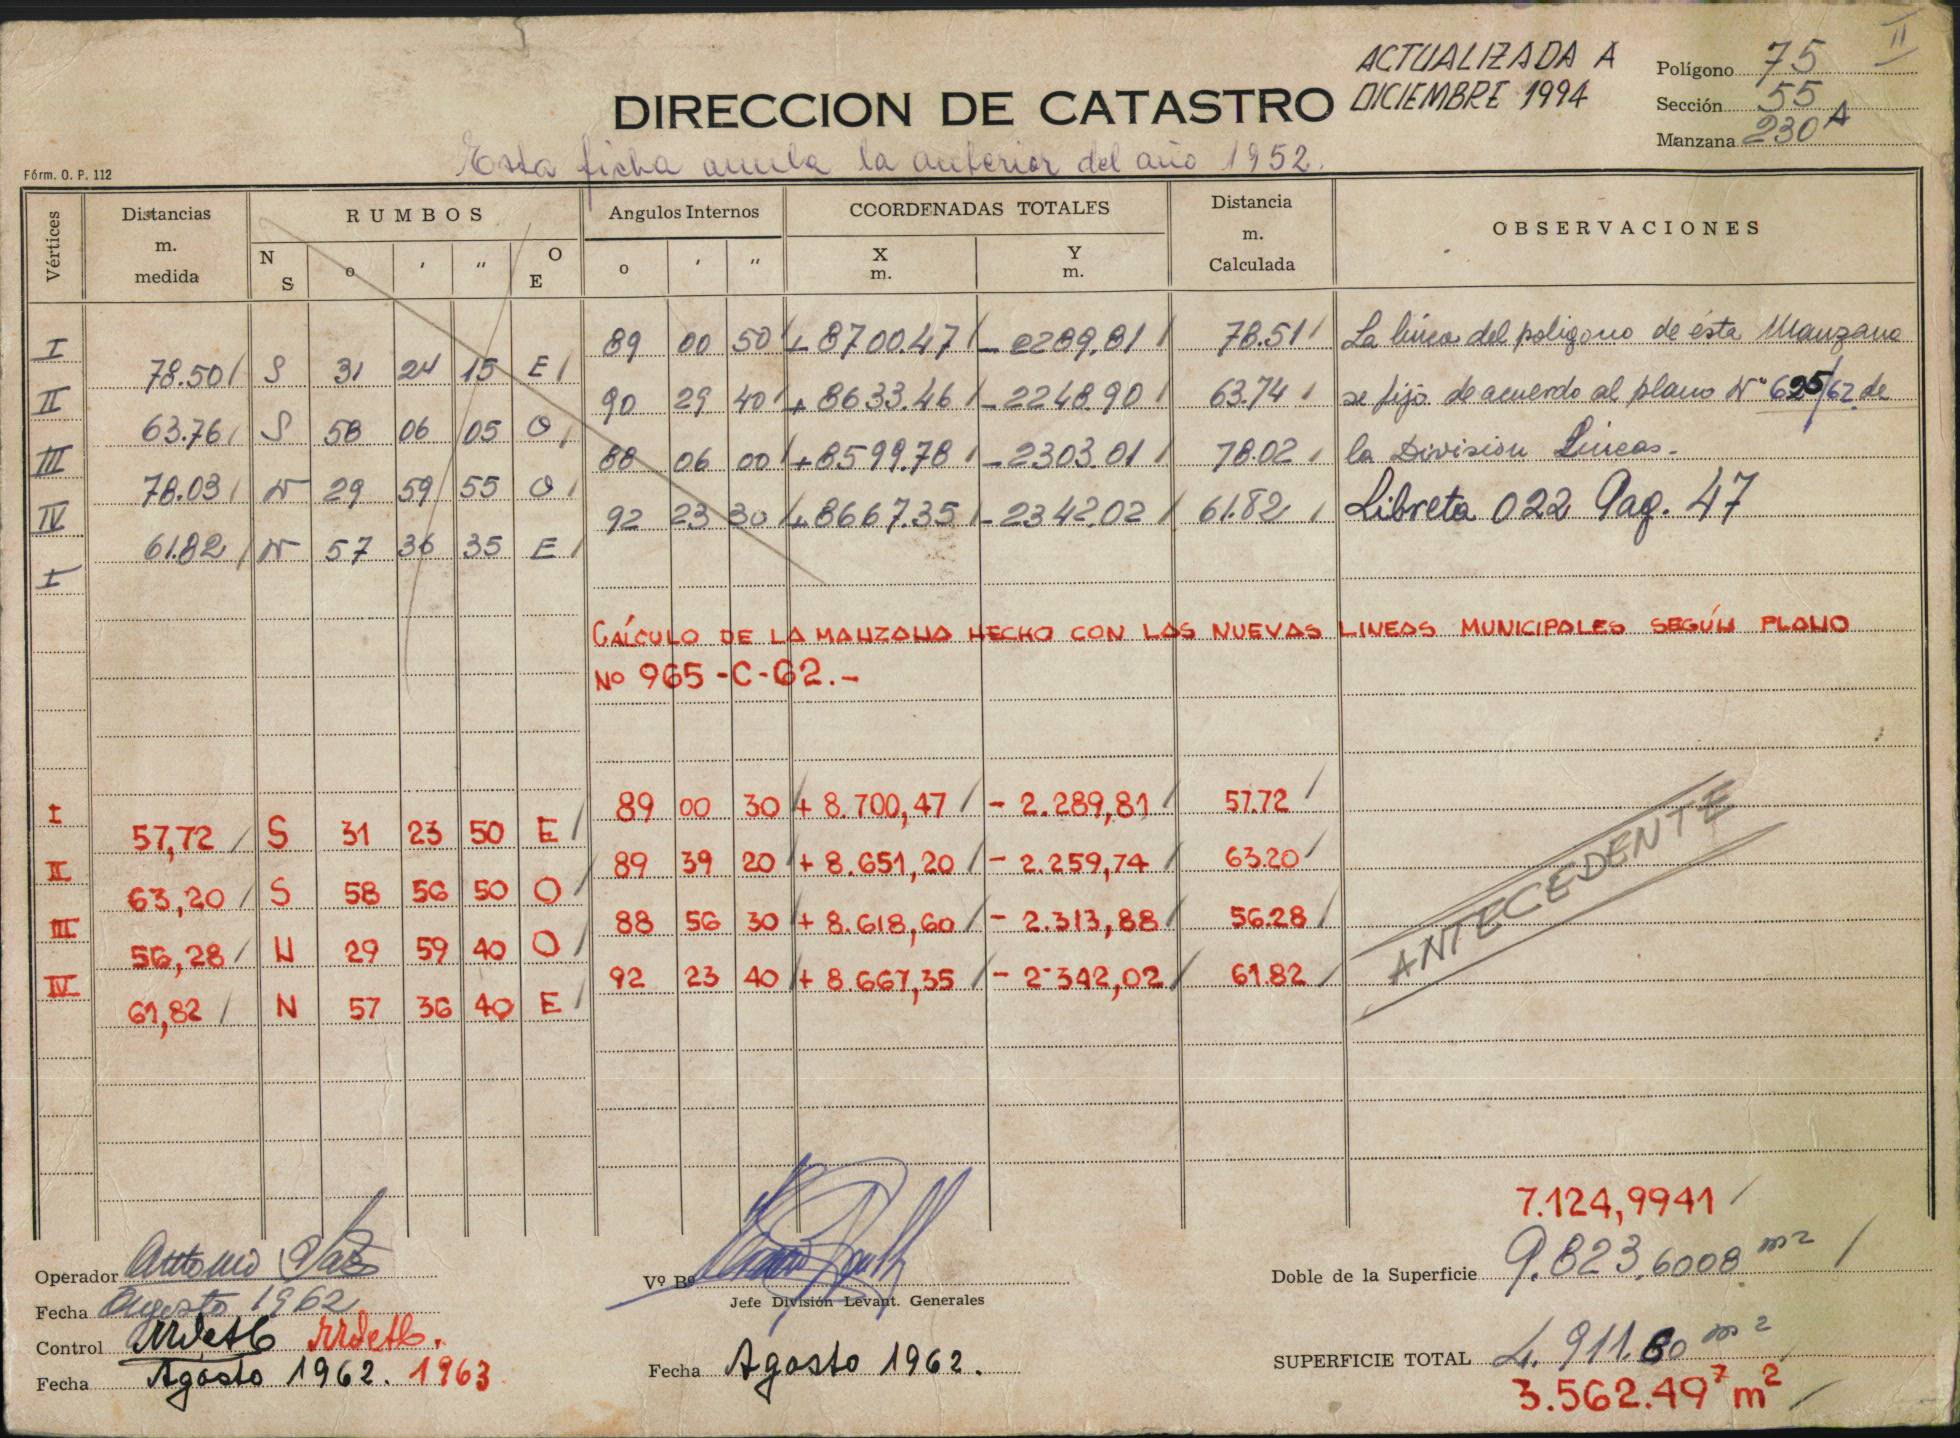 II
ACTUALIZADA A
DICIEMBRE 1994
Polígono 75
Sección 55
Manzana 230 A
DIRECCION DE CATASTRO
Esta ficha anula la anterior del año 1952.
Fórm. O. P. 112
Vértices
Distancias m. medida
RUMBOS
N S o ' " O E
Angulos Internos
o ' "
COORDENADAS TOTALES
X m. Y m.
Distancia m. Calculada
OBSERVACIONES
I 89 00 50 + 8700.47 - 2289.81 78.51 La línea del poligono de ésta Manzana
78.50 S 31 24 15 E
II 90 29 40 + 8633.46 - 2248.90 63.74 se fijó de acuerdo al plano Nº 625/62 de
63.76 S 58 06 05 O
III 88 06 00 + 8599.78 - 2303.01 78.02 la División Lineas.-
78.03 N 29 59 55 O
IV 92 23 30 + 8667.35 - 2342.02 61.82 Libreta 022 Pag. 47
61.82 N 57 36 35 E
I
CALCULO DE LA MANZANA HECHO CON LAS NUEVAS LINEAS MUNICIPALES SEGÚN PLANO
Nº 965-C-62.-
I 89 00 30 + 8.700,47 - 2.289,81 57.72
57,72 S 31 23 50 E
II 89 39 20 + 8.651,20 - 2.259,74 63.20
63,20 S 58 56 50 O
III 88 56 30 + 8.618,60 - 2.313,88 56.28
56,28 N 29 59 40 O
IV 92 23 40 + 8.667,35 - 2.342,02 61.82
61,82 N 57 36 40 E
ANTECEDENTE
7.124,9941
Operador Antonio
Vº Bº
Doble de la Superficie 9.823,6008 m2
Jefe División Levant. Generales
Fecha Agosto 1962
Control
Fecha Agosto 1962. 1963
Fecha Agosto 1962.
SUPERFICIE TOTAL 4.911.80 m2
3.562.49⁷ m²